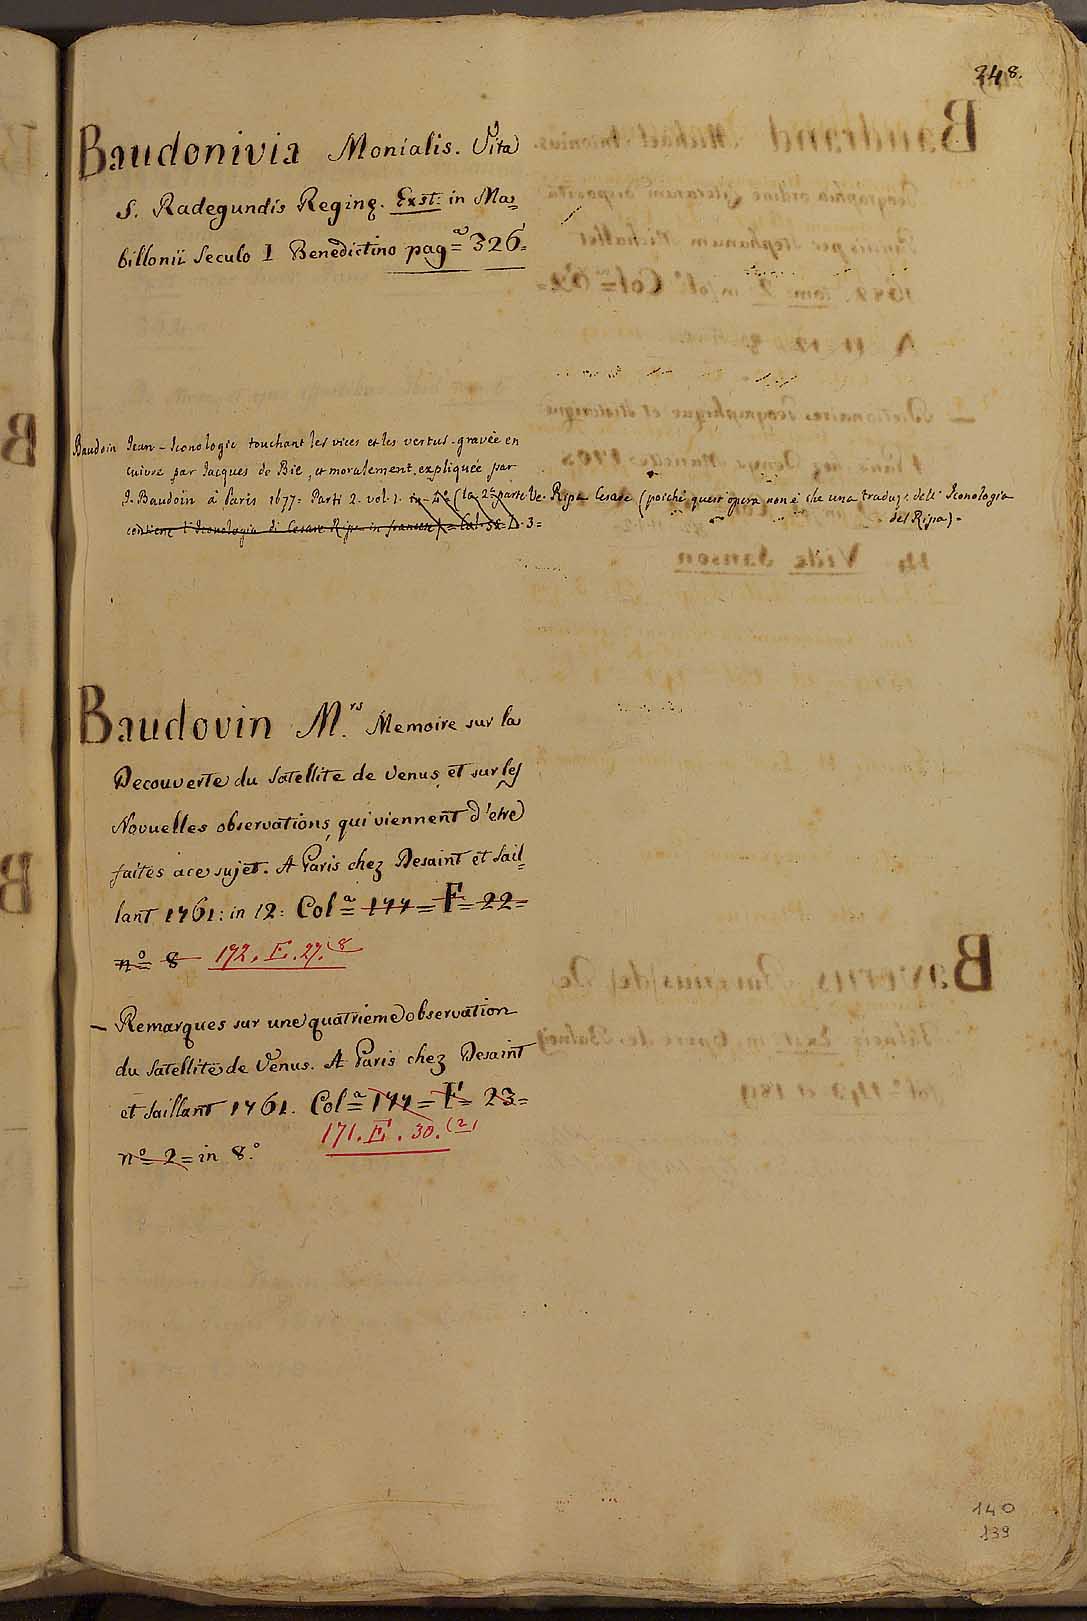 348.
Baudonivia Monialis. Vita
S. Radegundis Reginę. Exst: in Ma=
billonii Seculo I Benedictino pag.ª 326=
Baudoin Jean - Iconologie touchant les vices et les vertus - gravée en
cuivre par Jacques de Bie, et moralement expliquée par
J. Baudoin à Paris 1677= Parti 2. vol. 1. in 4º (la 2ª parte Ve. Ripa Cesare (poichè quest'opera non è che una traduz.e dell' Iconologia
del Ripa) -
contiene l'Iconologia di Cesare Ripa in francese) = Col. 58 = D. 3=
Baudovin M.rs Memoire sur la
Decouverte du Satellite de Venus et sur les
Novuelles observations qui viennent d'etre
faites a ce sujet. A Paris chez Desaint et Sail=
lant 1761: in 12: Colª= 177= F= 22=
nº= 8 172. E. 27. (8
- Remarques sur une quatrieme observation
du Satellite de Venus. A Paris chez Desaint
et Saillant 1761. Colª= 177= F= 23=
171. E. 30. (2)
nº= 2= in 8.º
140
139